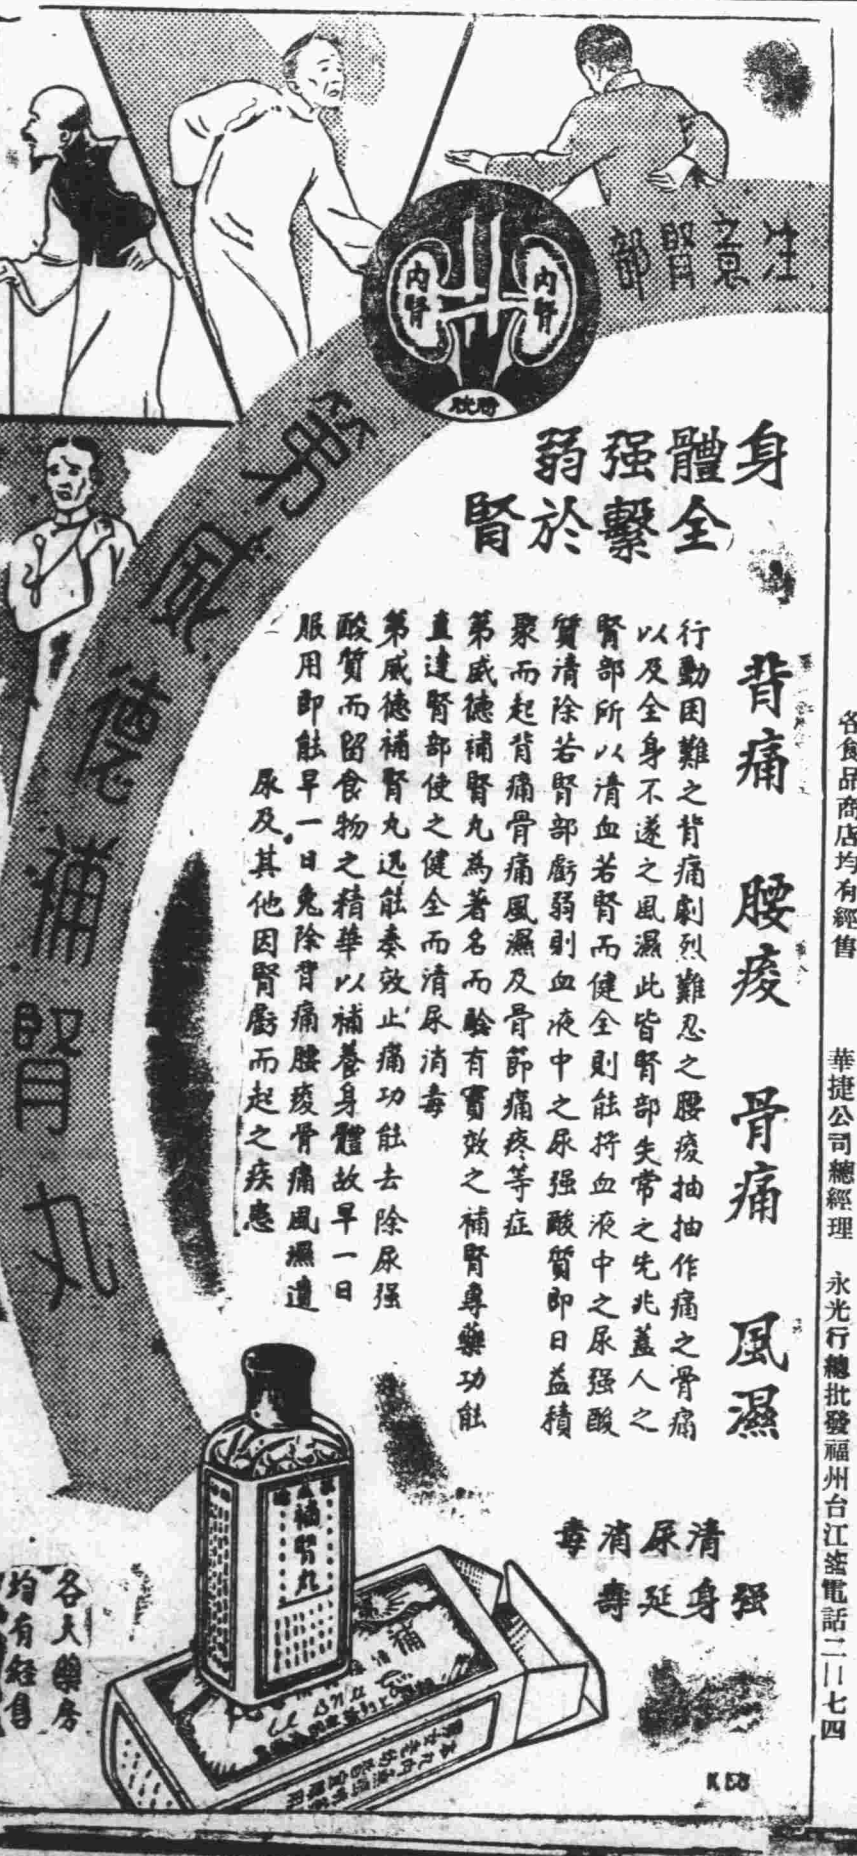 注意腎部
內腎
內腎
膀胱
第威德補腎丸
身體强弱
全繫於腎
背痛 腰痠 骨痛 風濕
行動困難之背痛劇烈難忍之腰痠抽抽作痛之骨痛
以及全身不遂之風濕此皆腎部失常之先兆蓋人之
腎部所以清血若腎而健全則能將血液中之尿强酸
質清除若腎部虧弱則血液中之尿强酸質即日益積
聚而起背痛骨痛風濕及骨節痛疼等症
第威德補腎丸為著名而驗有實效之補腎專藥功能
直達腎部使之健全而清尿消毒
第威德補腎丸迅能奏效止痛功能去除尿强
酸質而留食物之精華以補養身體故早一日
服用即能早一日免除背痛腰痠骨痛風濕遺
尿及其他因腎虧而起之疾患
清尿消毒
强身延壽
補腎丸
補
各大藥房
均有經售
K 58
各食品商店均有經售 華捷公司總經理 永光行總批發福州台江電話二一七四